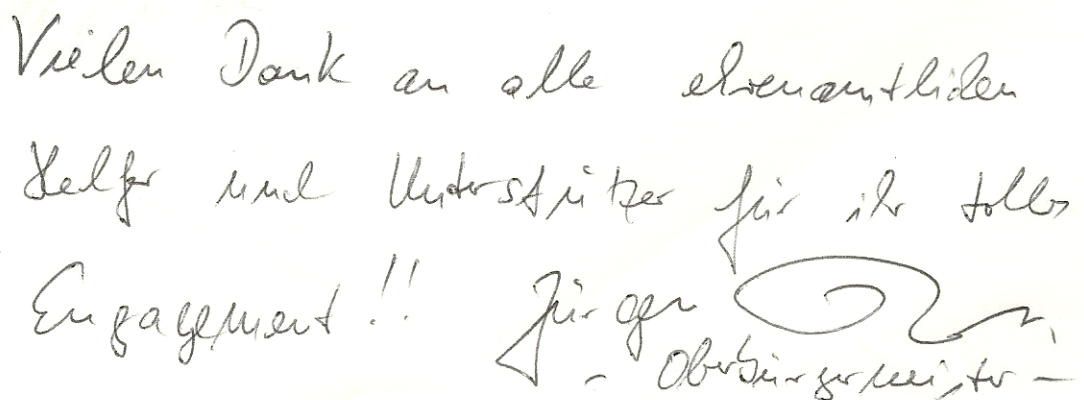 Vielen Dank an alle ehrenamtlichen
Helfer und Unterstützer für ihr tolles
Engagement!! Jürgen
- Oberbürgermeister -